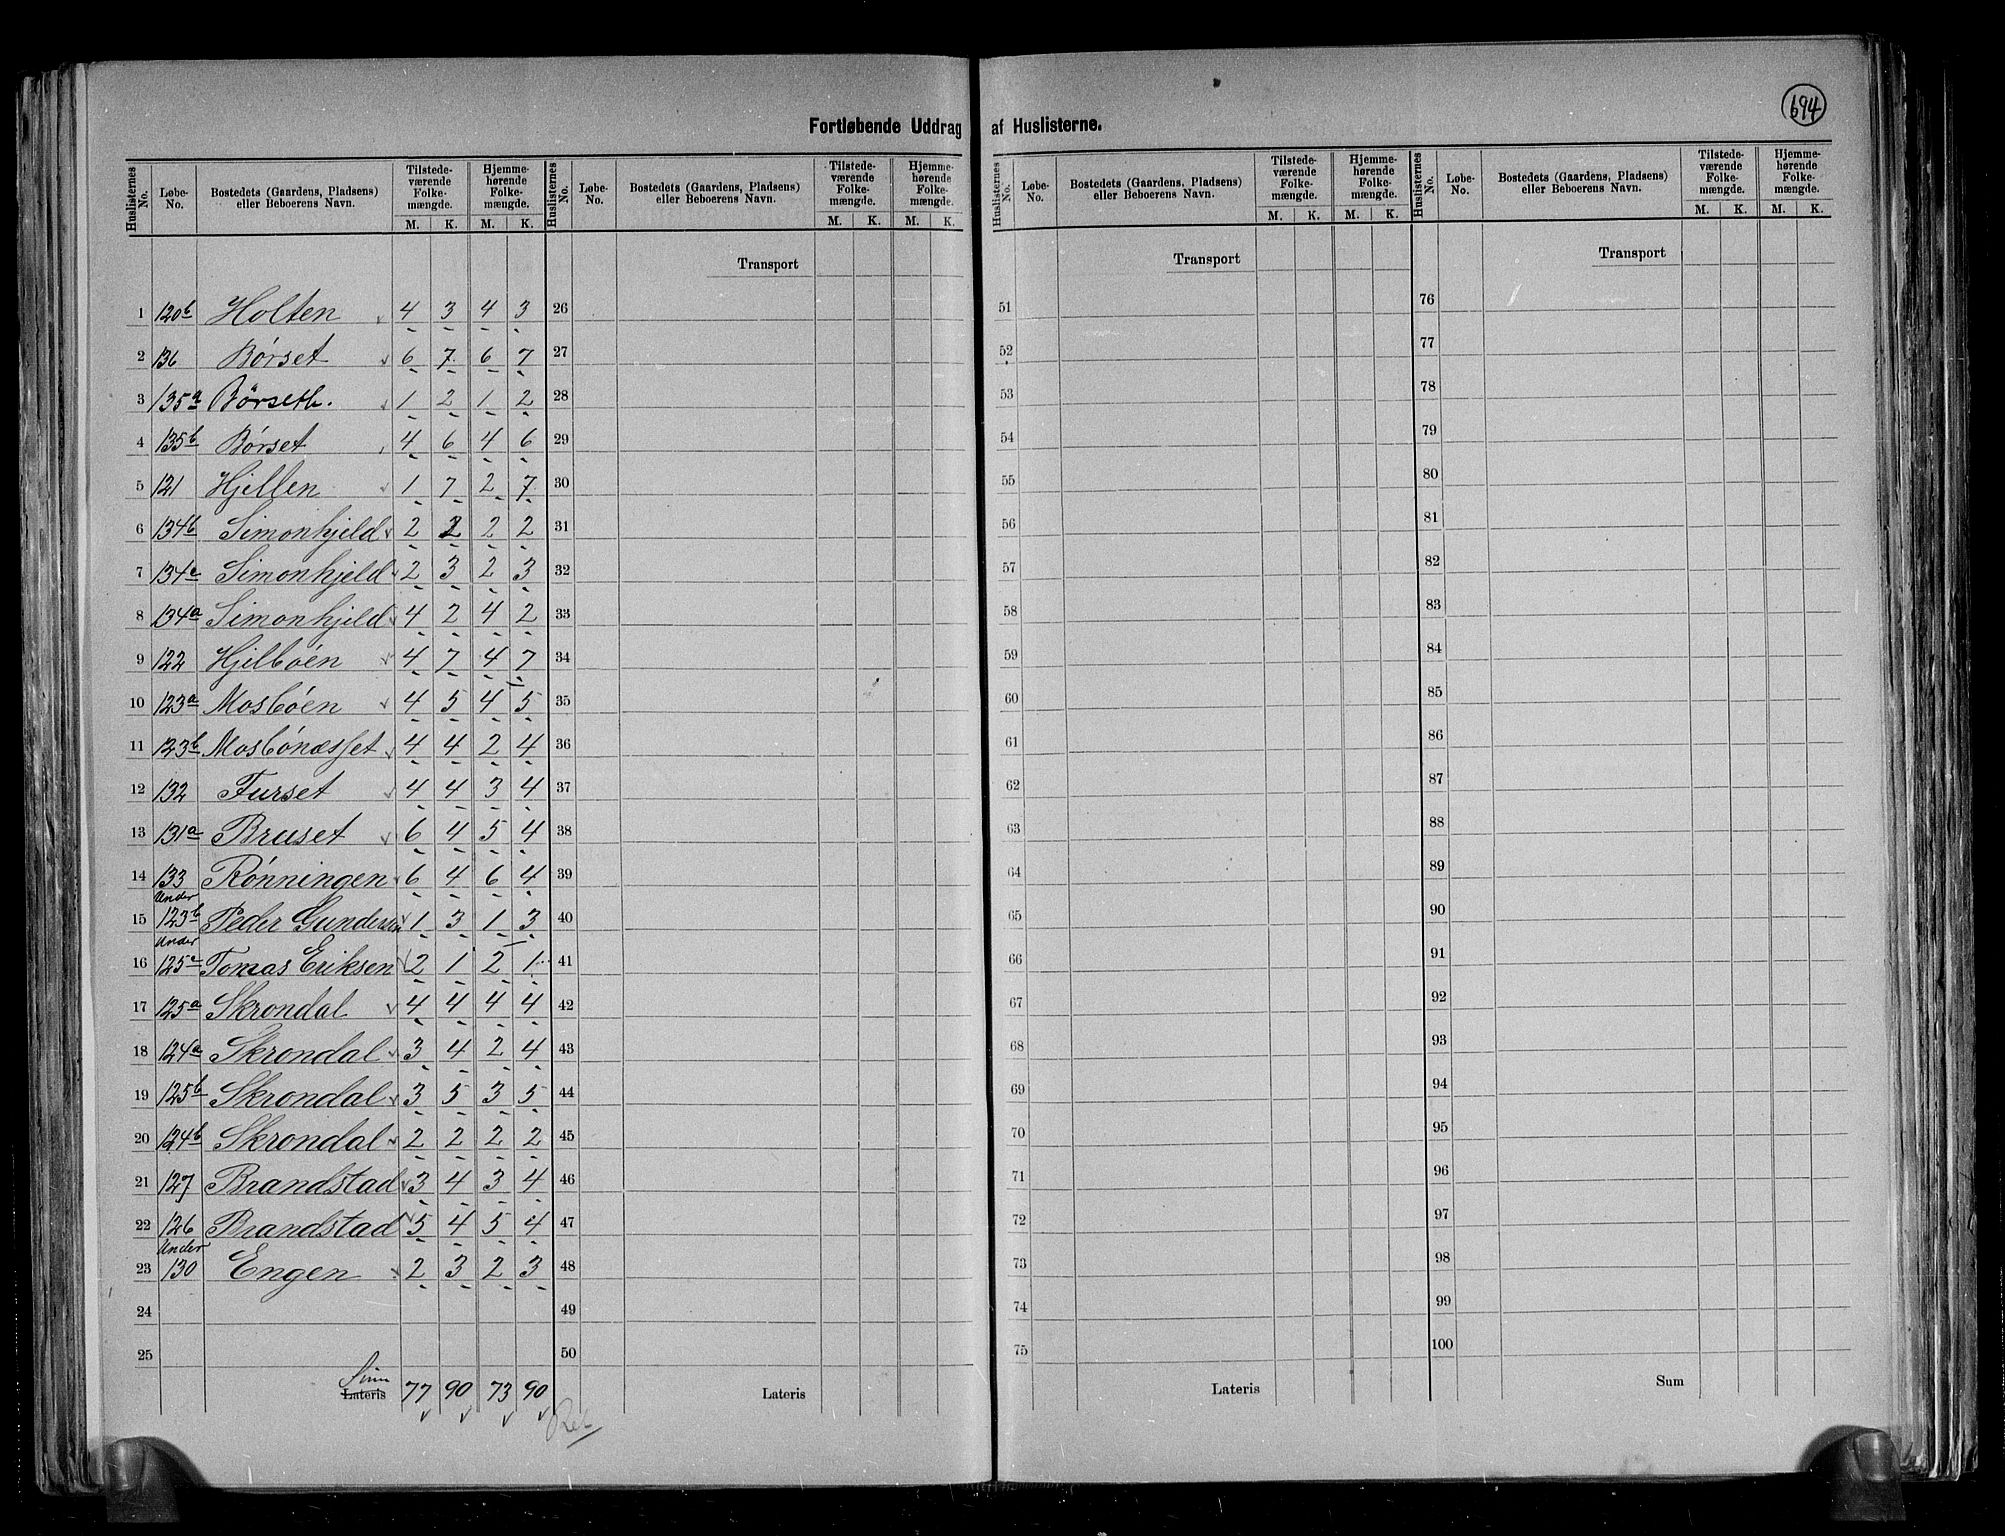 694
Fortløbende Uddrag af Huslisterne.
Huslisternes No. | Løbe-No. | Bostedets (Gaardens, Pladsens) eller Beboerens Navn. | Tilstedeværende Folkemængde. M. K. | Hjemmehørende Folkemængde. M. K.
Huslisternes No. | Løbe-No. | Bostedets (Gaardens, Pladsens) eller Beboerens Navn. | Tilstedeværende Folkemængde. M. K. | Hjemmehørende Folkemængde. M. K.
Huslisternes No. | Løbe-No. | Bostedets (Gaardens, Pladsens) eller Beboerens Navn. | Tilstedeværende Folkemængde. M. K. | Hjemmehørende Folkemængde. M. K.
Huslisternes No. | Løbe-No. | Bostedets (Gaardens, Pladsens) eller Beboerens Navn. | Tilstedeværende Folkemængde. M. K. | Hjemmehørende Folkemængde. M. K.
Transport Transport Transport
1 120b Holten 4 3 4 3 26 51 76
2 136 Børset 6 7 6 7 27 52 77
3 135a Børseth. 1 2 1 2 28 53 78
4 135b Børset 4 6 4 6 29 54 79
5 121 Hjellen 1 7 2 7 30 55 80
6 134b Simonhjeld 2 2 2 2 31 56 81
7 134c Simonhjeld 2 3 2 3 32 57 82
8 134a Simonhjeld 4 2 4 2 33 58 83
9 122 Hjelbøen 4 7 4 7 34 59 84
10 123a Mosbøen 4 5 4 5 35 60 85
11 123b Mosbønæsset 4 4 2 4 36 61 86
12 132 Furset 4 4 3 4 37 62 87
13 131a Bruset 6 4 5 4 38 63 88
14 133 Rønningen 6 4 6 4 39 64 89
Under
15 123b Peder Gundersen 1 3 1 3 40 65 90
Under
16 125c Tomas Eriksen 2 1 2 1 41 66 91
17 125a Skrondal 4 4 4 4 42 67 92
18 124a Skrondal 3 4 2 4 43 68 93
19 125b Skrondal 3 5 3 5 44 69 94
20 124b Skrondal 2 2 2 2 45 70 95
21 127 Brandstad 3 4 3 4 46 71 96
22 126 Brandstad 5 4 5 4 47 72 97
Under
23 130 Engen 2 3 2 3 48 73 98
24 49 74 99
25 50 75 100
Sum
Lateris 77 90 73 90 Lateris Lateris Sum